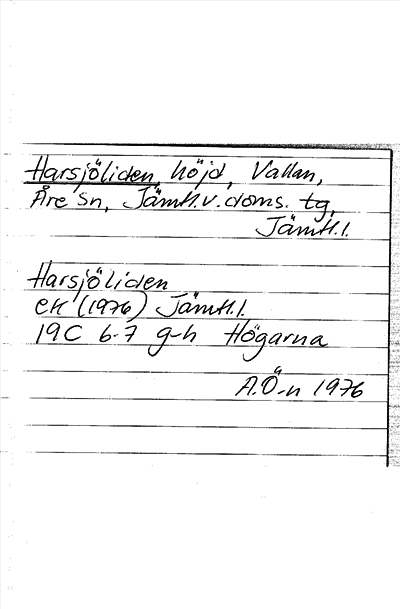 Harsjöliden, höjd, Vallan,
Åre sn, Jämtl.v.doms. tg,
Jämtl.l.
Harsjöliden
ek (1976) Jämtl.l.
19C 6-7 g-h Högarna
A.Ö-n 1976